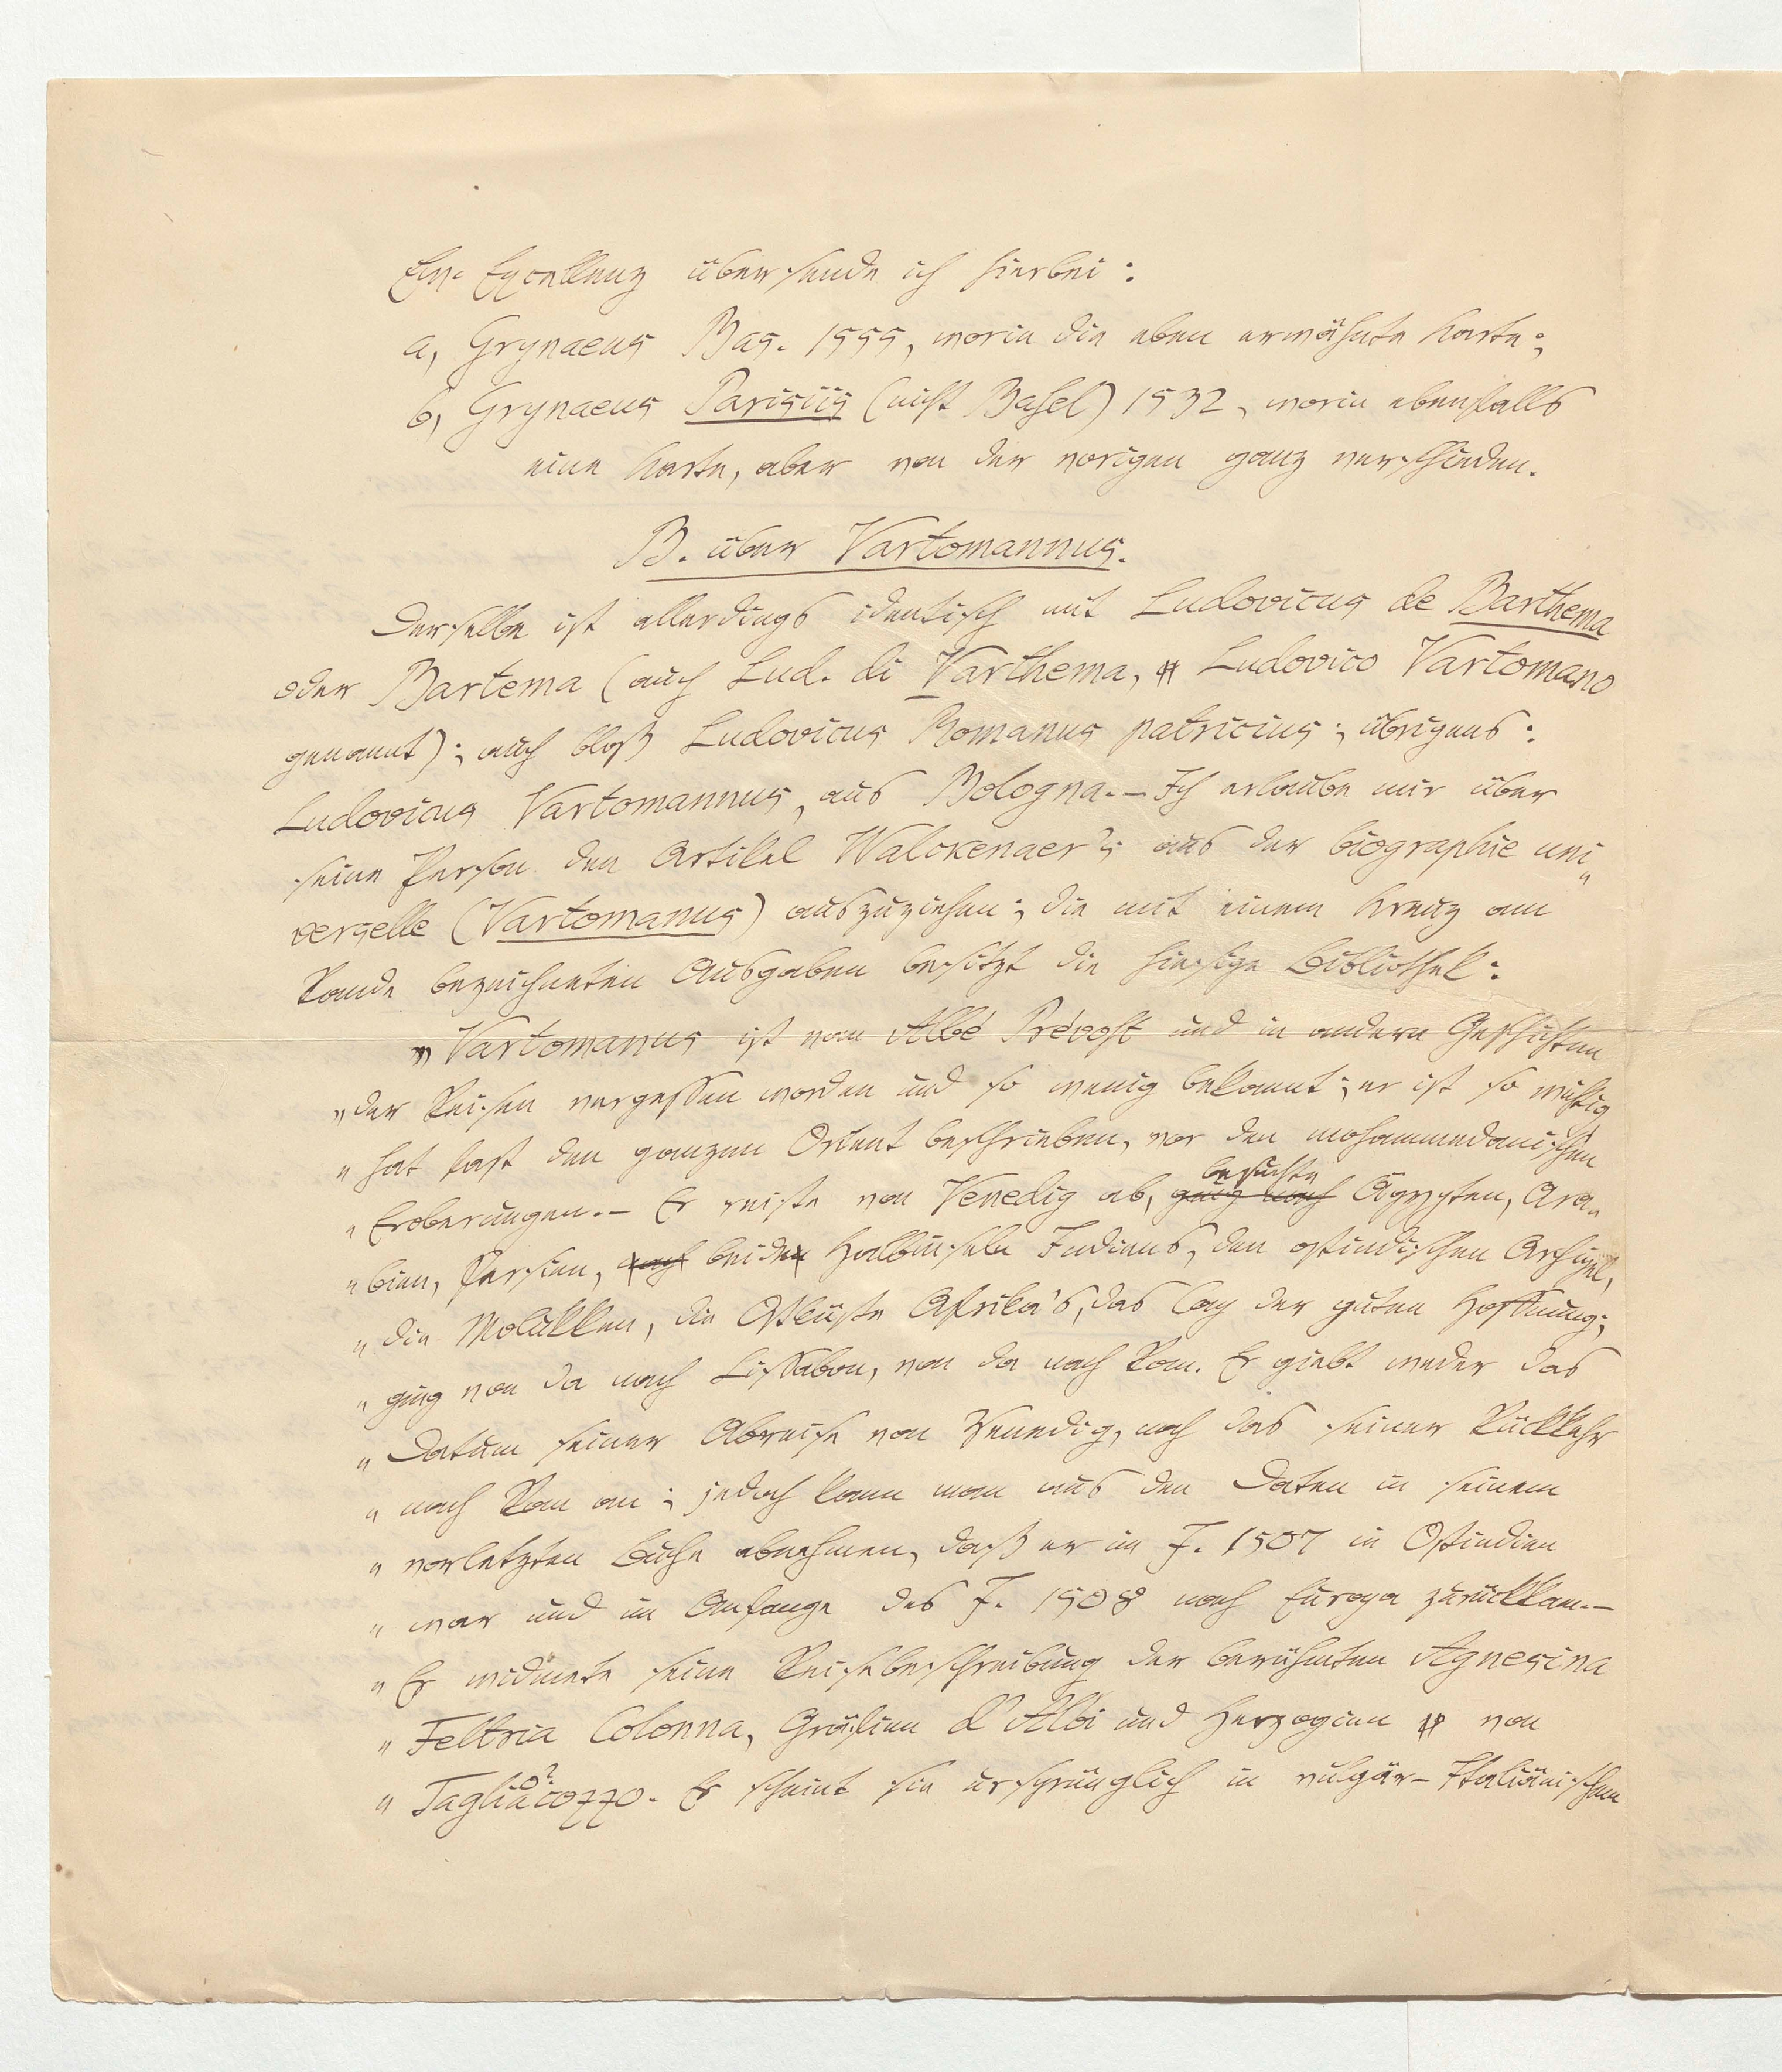 Ew. Excellenz übersende ich hierbei:
a, Grynaeus Bas. 1555, worin die eben erwähnte Karte;
b, Grynaeus Parisiis (nicht Basel) 1532, worin ebenfalls
eine Karte, aber von der vorigen ganz verschieden.
B. über Vartomannus.
Derselbe ist allerdings identisch mit Ludovicus de Barthema
oder Bartema (auch Lud. di Varthema, Ludovico Vartomano
genannt); auch bloß Ludovicus Romanus patricius; übrigens:
Ludovicus Vartomannus, aus Bologna.– Ich erlaube mir über
seine Person den Artikel Walckenaer's aus der biographie uni„
verselle (Vartomanus) auszuziehen; die mit einem Kreuz am
Rande bezeichneten Ausgaben besitzt die hiesige Bibliothek:
„Vartomanus ist von Abbé Prévost und in andern Geschichten
„der Reisen vergessen worden und so wenig bekannt; er ist so wichtig
„hat fast den ganzen Orient beschrieben, vor den mohammedanischen
„Eroberungen.– Er reiste von Venedig ab, ging nach besuchte Ägypten, Ara„
„bien, Persien, nach beiden Halbinseln Indiens, den ostindischen Archipel,
„die Molukken, die Ostküste Afrika's, das Cap der guten Hoffnung;
„ging von da nach Lissabon, von da nach Rom. Er giebt weder das
„Datum seiner Abreise von Venedig, noch das seiner Rückkehr
„nach Rom an; jedoch kann man aus den Daten in seinem
„vorletzten Buche abnehmen, daß er im J. 1507 in Ostindien
„war und im Anfange des J. 1508 nach Europa zurückkam.–
„Er widmete seine Reisebeschreibung der berühmten Agnesina
„Feltria Colonna, Gräfinn d'Albi und Herzoginn von
„Tagliacozzo. Er scheint sie ursprünglich in vulgär-Italiänischem